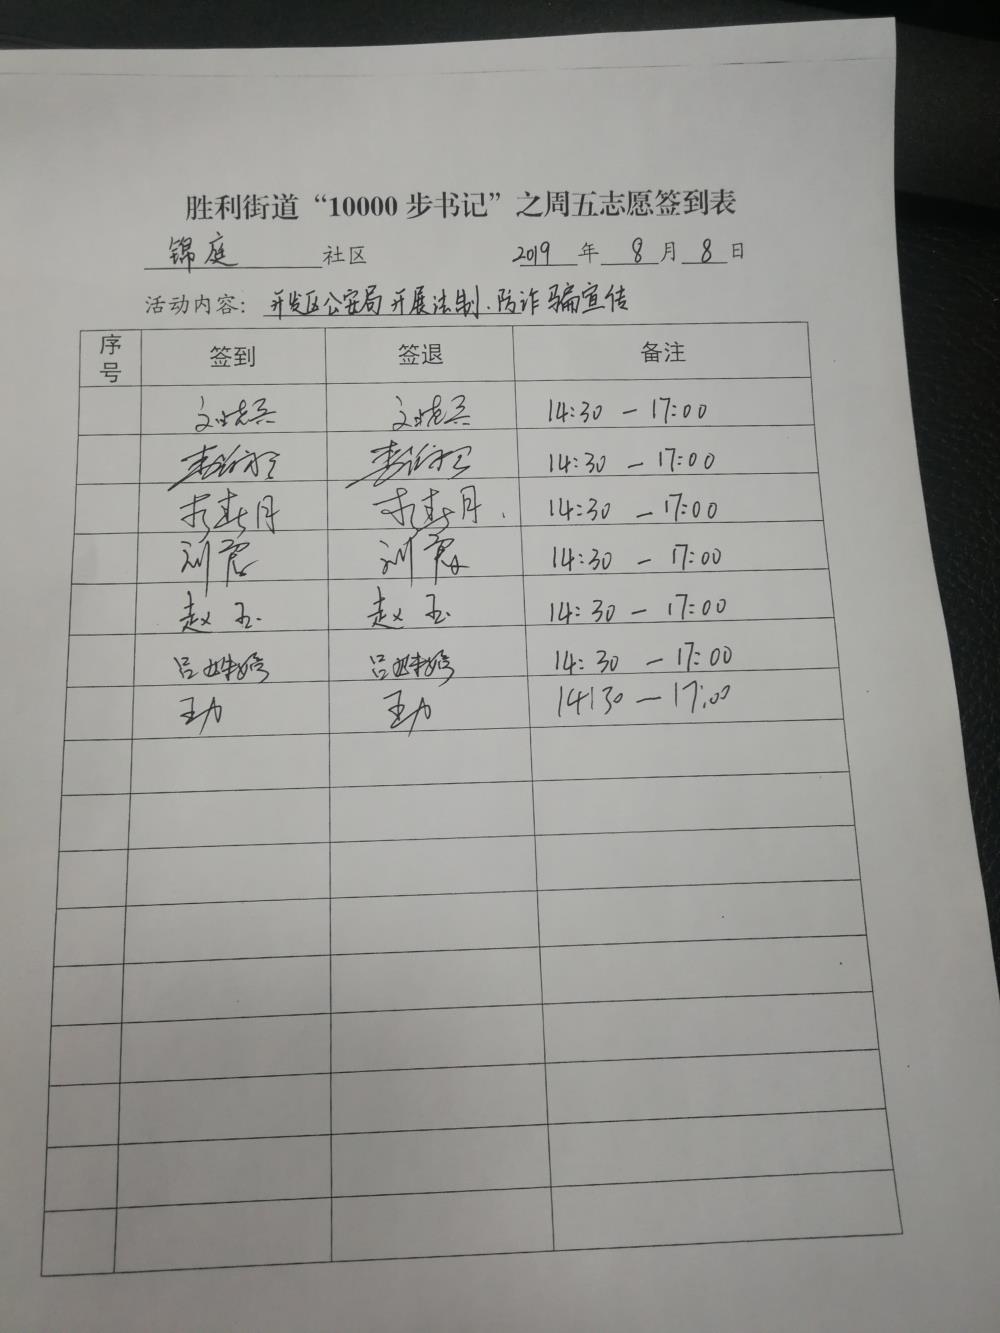 胜利街道“10000步书记”之周五志愿签到表
锦庭 社区 2019 年 8 月 8 日
活动内容：开发区公安局开展法制、防诈骗宣传
序号 签到 签退 备注
14:30 — 17:00
14:30 — 17:00
14:30 — 17:00
刘 刘 14:30 — 17:00
赵玉 赵玉 14:30 — 17:00
吕姝婷 吕姝婷 14:30 — 17:00
14:30 — 17:00